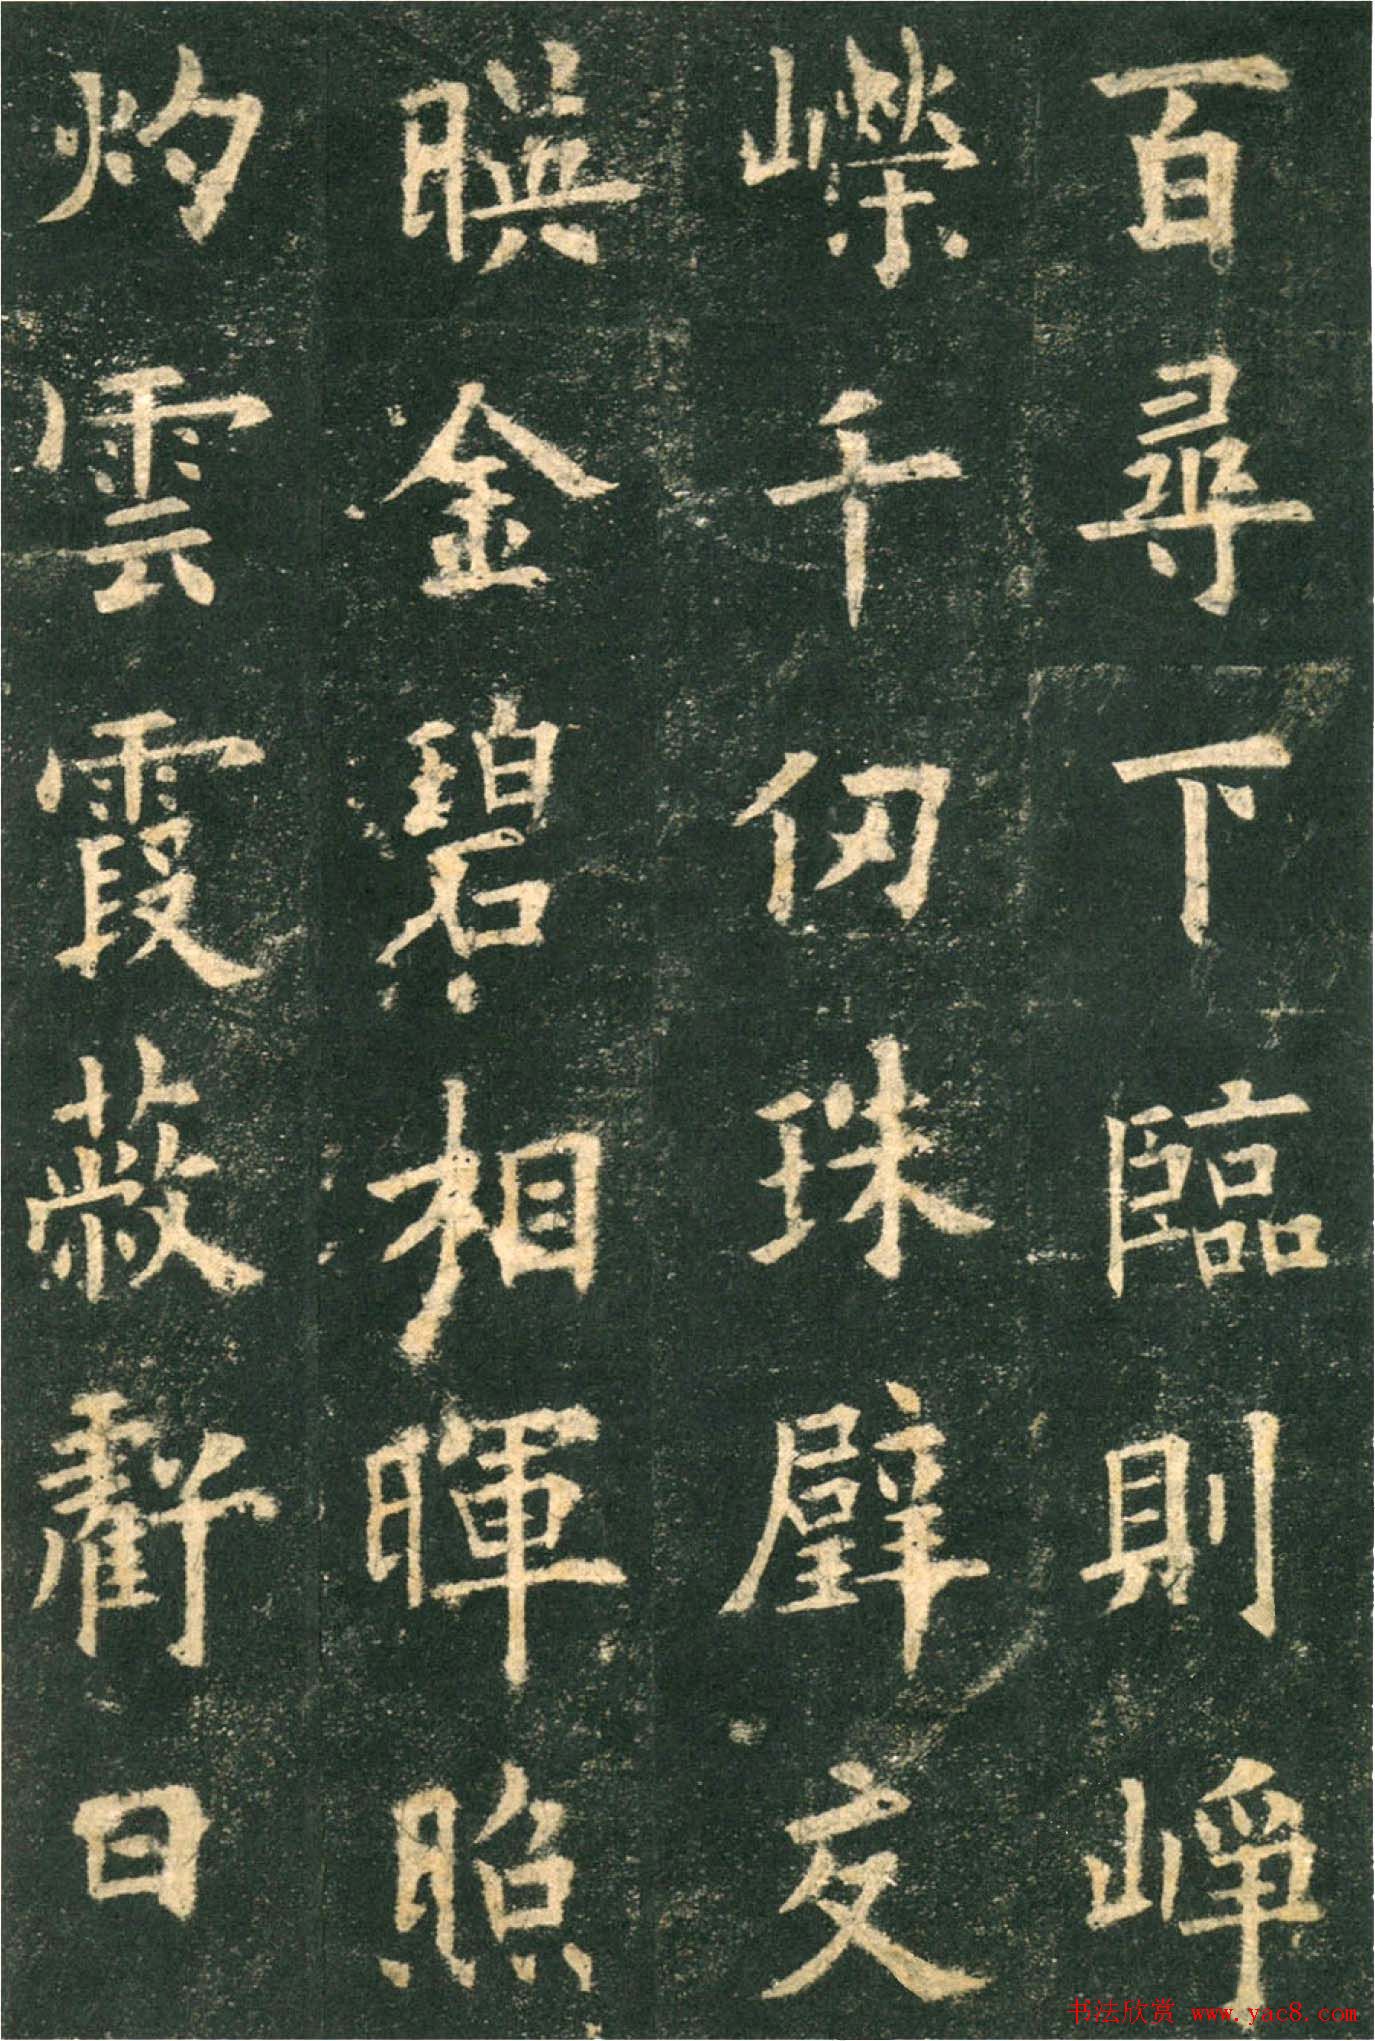 百尋下臨則崢
嶸千仞珠璧交
暎金碧相暉照
灼雲霞蔽虧日
书法欣赏 www.yac8.com